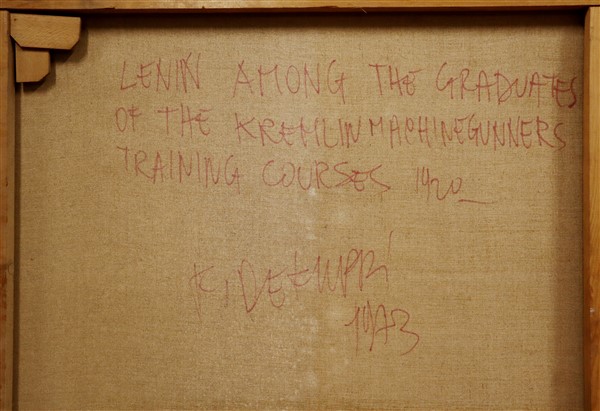 LENIN AMONG THE GRADUATES
OF THE KREMLIN MACHINEGUNNERS
TRAINING COURSES 1920
1973